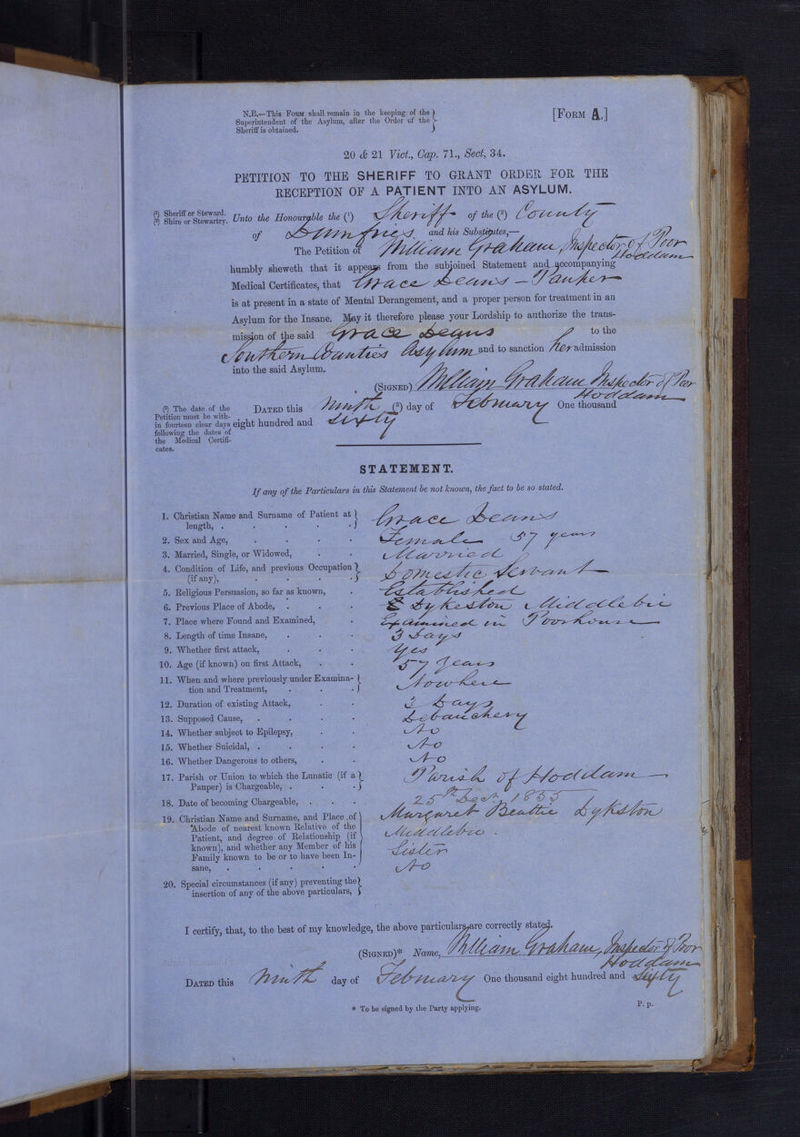 N.B.—This FORM shall remain in the keeping of the
Superintendent of the Asylum, after the Order of the
Sheriff is obtained.
[FORM A.]
20 & 21 Vict., Cap. 71., Sect, 34.
PETITION TO THE SHERIFF TO GRANT ORDER FOR THE
RECEPTION OF A PATIENT INTO AN ASYLUM.
(1) Sheriff or Steward.
(2) Shire or Stewartry.
Unto the Honourable the (1) Sheriff of the (2) County
of Dumfries and his Substitutes,—
The Petition of William Graham Inspector of Poor Hoddam
humbly sheweth that it appears from the subjoined Statement and accompanying
Medical Certificates, that Grace Deans — Pauper
is at present in a state of Mental Derangement, and a proper person for treatment in an
Asylum for the Insane. May it therefore please your Lordship to authorize the trans-
mission of the said Grace Deans to the
Southern Counties Asylum and to sanction her admission
into the said Asylum.
(SIGNED) William Graham Inspector of Poor
Hoddam
(3) The date of the
Petition must be with-
in fourteen clear days
following the dates of
the Medical Certifi-
cates.
DATED this Ninth (3) day of February One thousand
eight hundred and Sixty
STATEMENT.
If any of the Particulars in this Statement be not known, the fact to be so stated.
1. Christian Name and Surname of Patient at
length, . Grace Deans
2. Sex and Age, Female 57 years
3. Married, Single, or Widowed, Married
4. Condition of Life, and previous Occupation
(if any), Domestic Servant
5. Religious Persuasion, so far as known, Established
6. Previous Place of Abode, Dykeston Middlebie
7. Place where Found and Examined, Examined in Poorhouse
8. Length of time Insane, 3 Days
9. Whether first attack, Yes
10. Age (if known) on first Attack, 57 Years
11. When and where previously under Examina-
tion and Treatment, Nowhere
12. Duration of existing Attack, 3 Days
13. Supposed Cause, Debauchery
14. Whether subject to Epilepsy, No
15. Whether Suicidal, No
16. Whether Dangerous to others, No
17. Parish or Union to which the Lunatic (if a
Pauper) is Chargeable, Parish of Hoddam
18. Date of becoming Chargeable, 25th 1855
19. Christian Name and Surname, and Place of
Abode of nearest known Relative of the
Patient, and degree of Relationship (if
known), and whether any Member of his
Family known to be or to have been In-
sane,
Margaret Beattie Dykston
Middlebie.
Sister
No
20. Special circumstances (if any) preventing the
insertion of any of the above particulars,
I certify, that, to the best of my knowledge, the above particulars are correctly stated.
(SIGNED)* Name, William Graham, Inspector of Poor
Hoddam
DATED this Ninth day of February One thousand eight hundred and Sixty
* To be signed by the Party applying.
P. p.